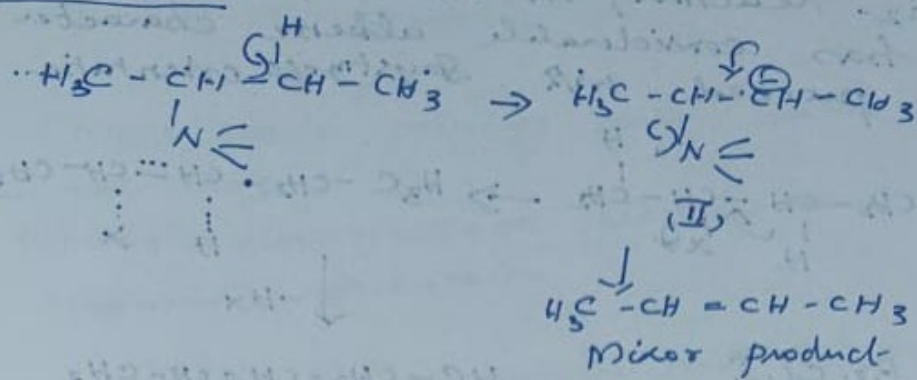 H
H₃C - CH - CH - CH₃ → H₃C - CH - CH - CH₃
N N
(II)
↓
H₃C - CH = CH - CH₃
Minor product